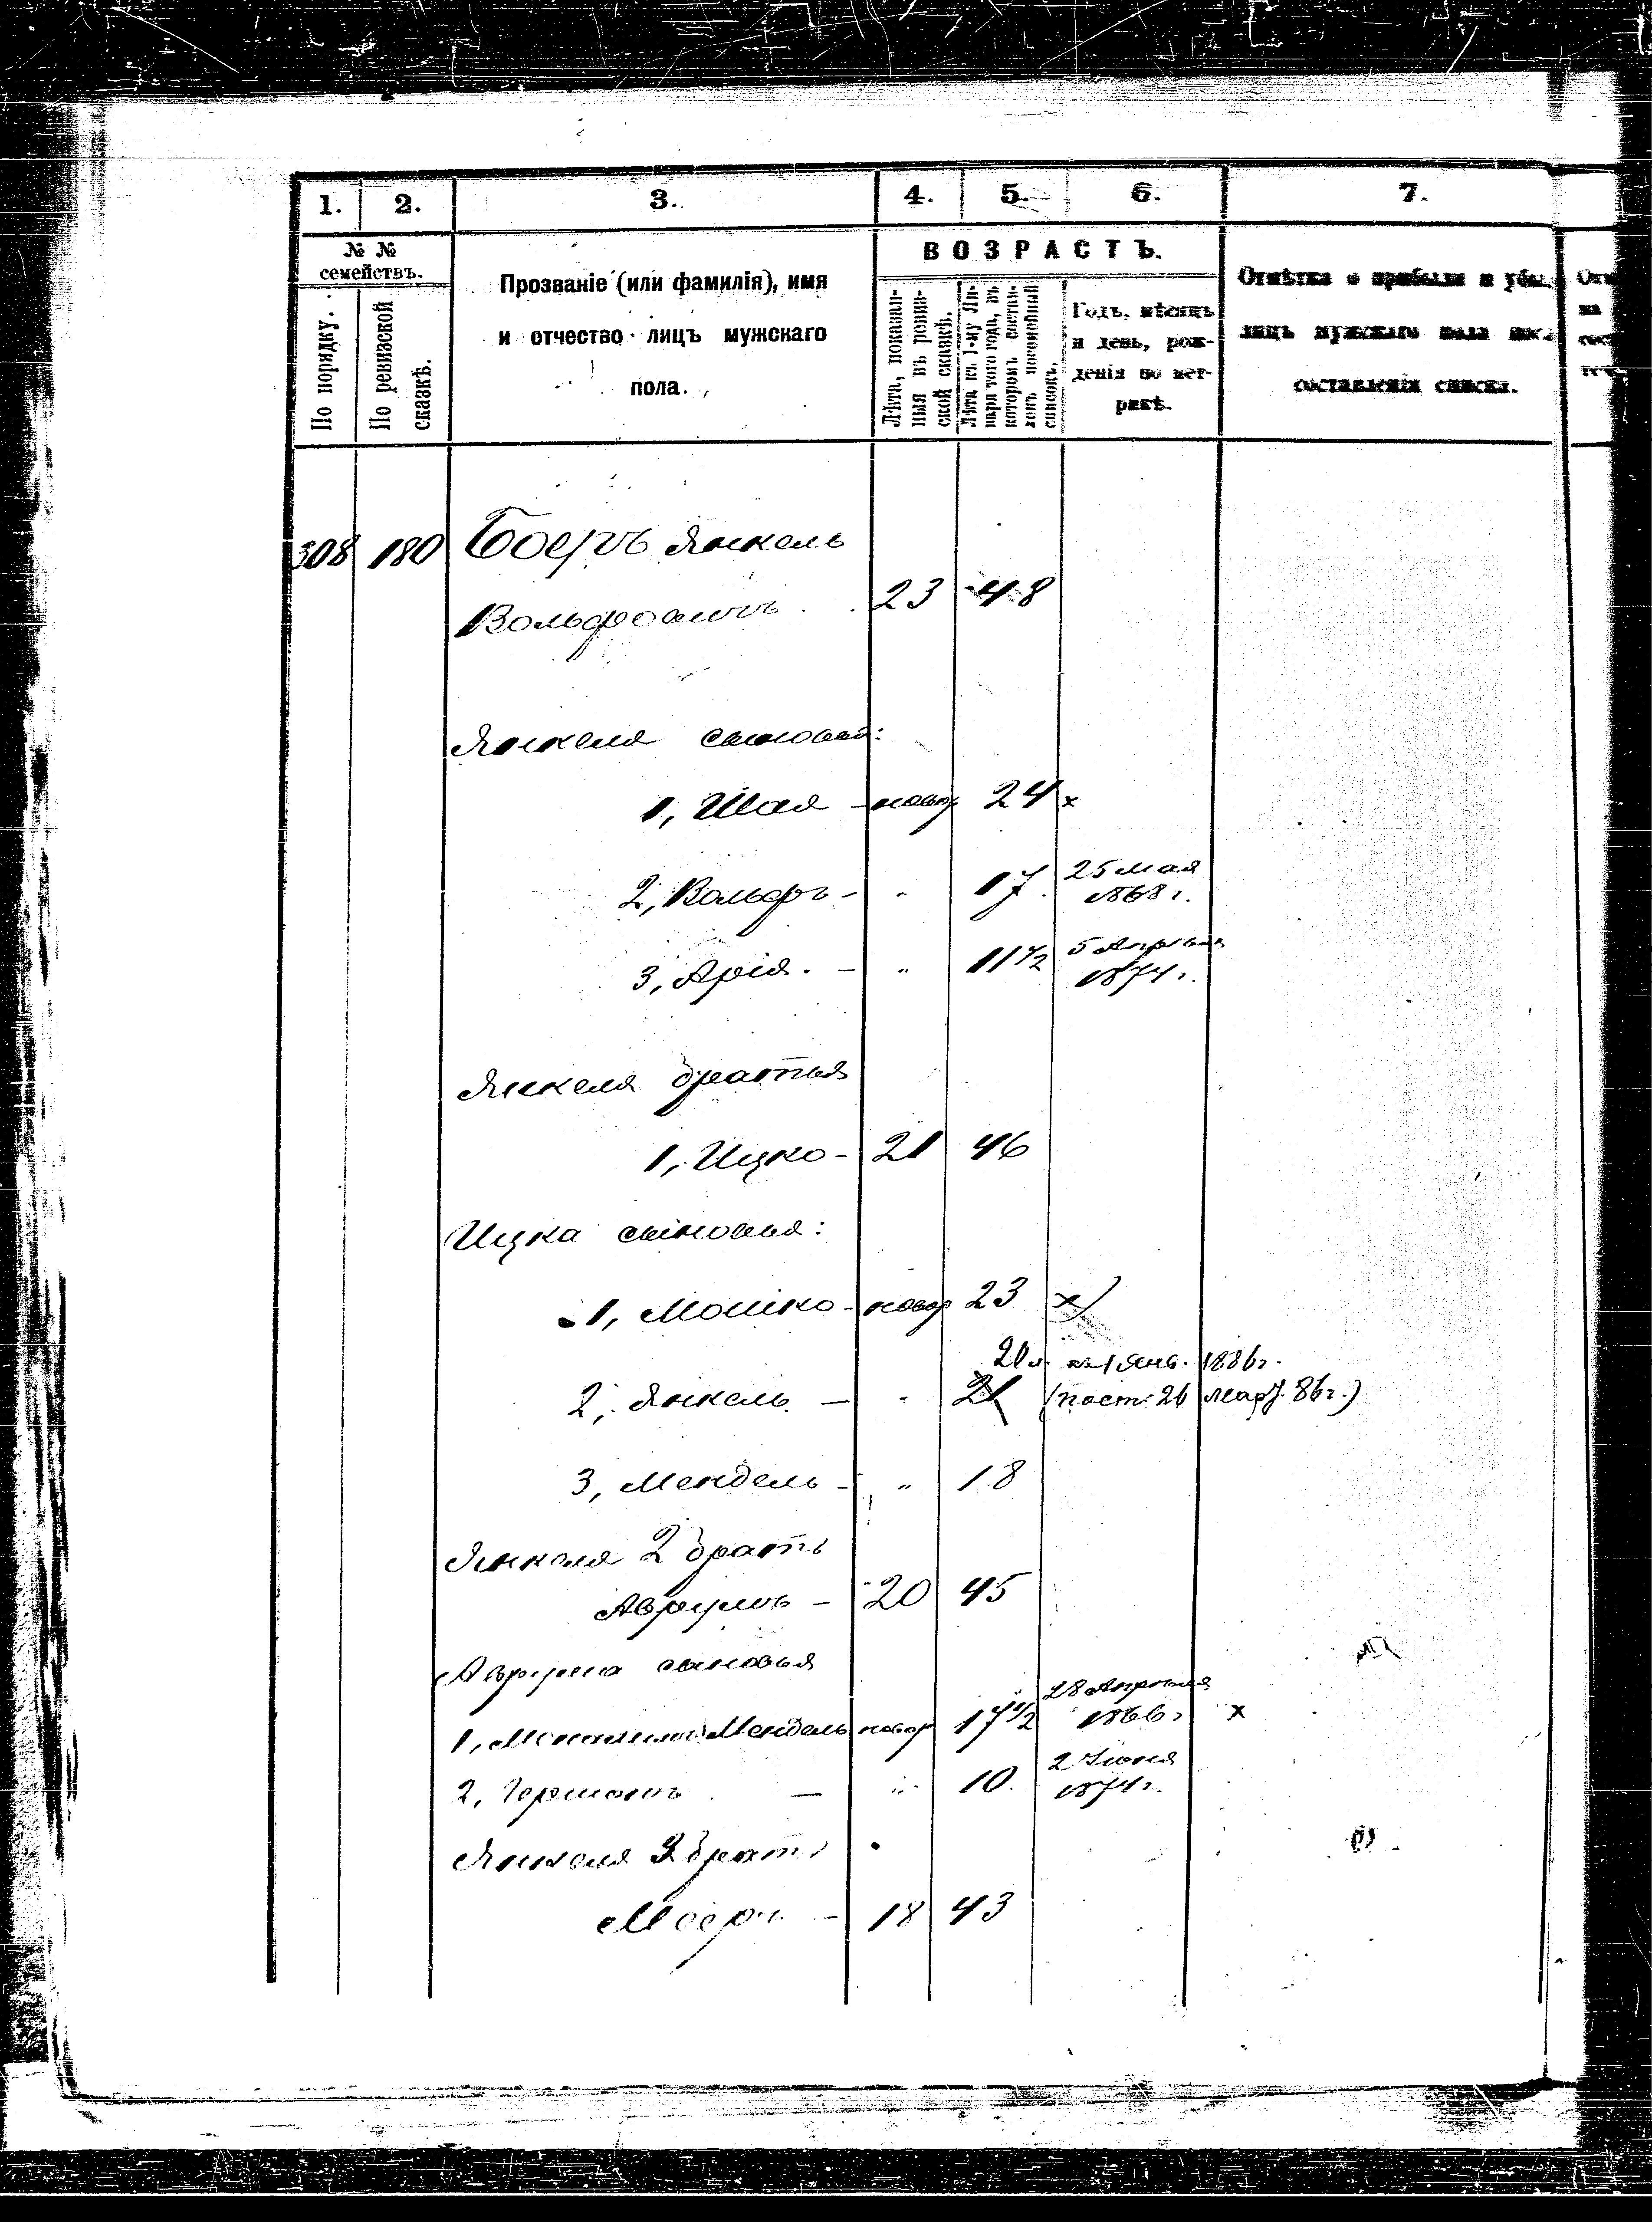 1. 2. 3. 4. 5. 6. 7.
№ №
семействъ.
По порядку.
По ревизской
сказкѣ.
Прозваніе (или фамилія), имя
и отчество лицъ мужскаго
пола.
ВОЗРАСТЪ.
Лѣта, показан-
ныя въ ревиз-
ской сказкѣ.
Лѣта къ 1-му Ян-
варя того года, въ
которомъ состав-
ленъ посемейный
списокъ.
Годъ, мѣсяцъ
и день, рож-
денія по мет-
рикѣ.
Отмѣтка о прибыли и убы
лицъ мужскаго пола
составленія списка.
308 180 Боеръ Янкель
Вольфовичъ 23 48
Янкеля сыновья:
1, Шая - новор 24 x
2, Вольфъ - " 17 25 мая
1868 г.
3, Арія. - " 11 1/2 5 Апрѣля
1874 г.
Янкеля братья
1, Ицко - 21 46
Ицка сыновья:
1, Мошко - новор 23 x)
20 л. къ 1 Янв. 1886 г.
2, Янкель - " 21 (пост. 26 86 г.)
3, Мендель - " 18
Янкеля 2 братъ
Аврумъ - 20 45
Аврума сыновья
1, Мендель новор 17 1/2 28 Апрѣля
1866 г x
2, Германъ - " 10. 2 Іюня
1874 г.
Янкеля 3 братъ
18 43